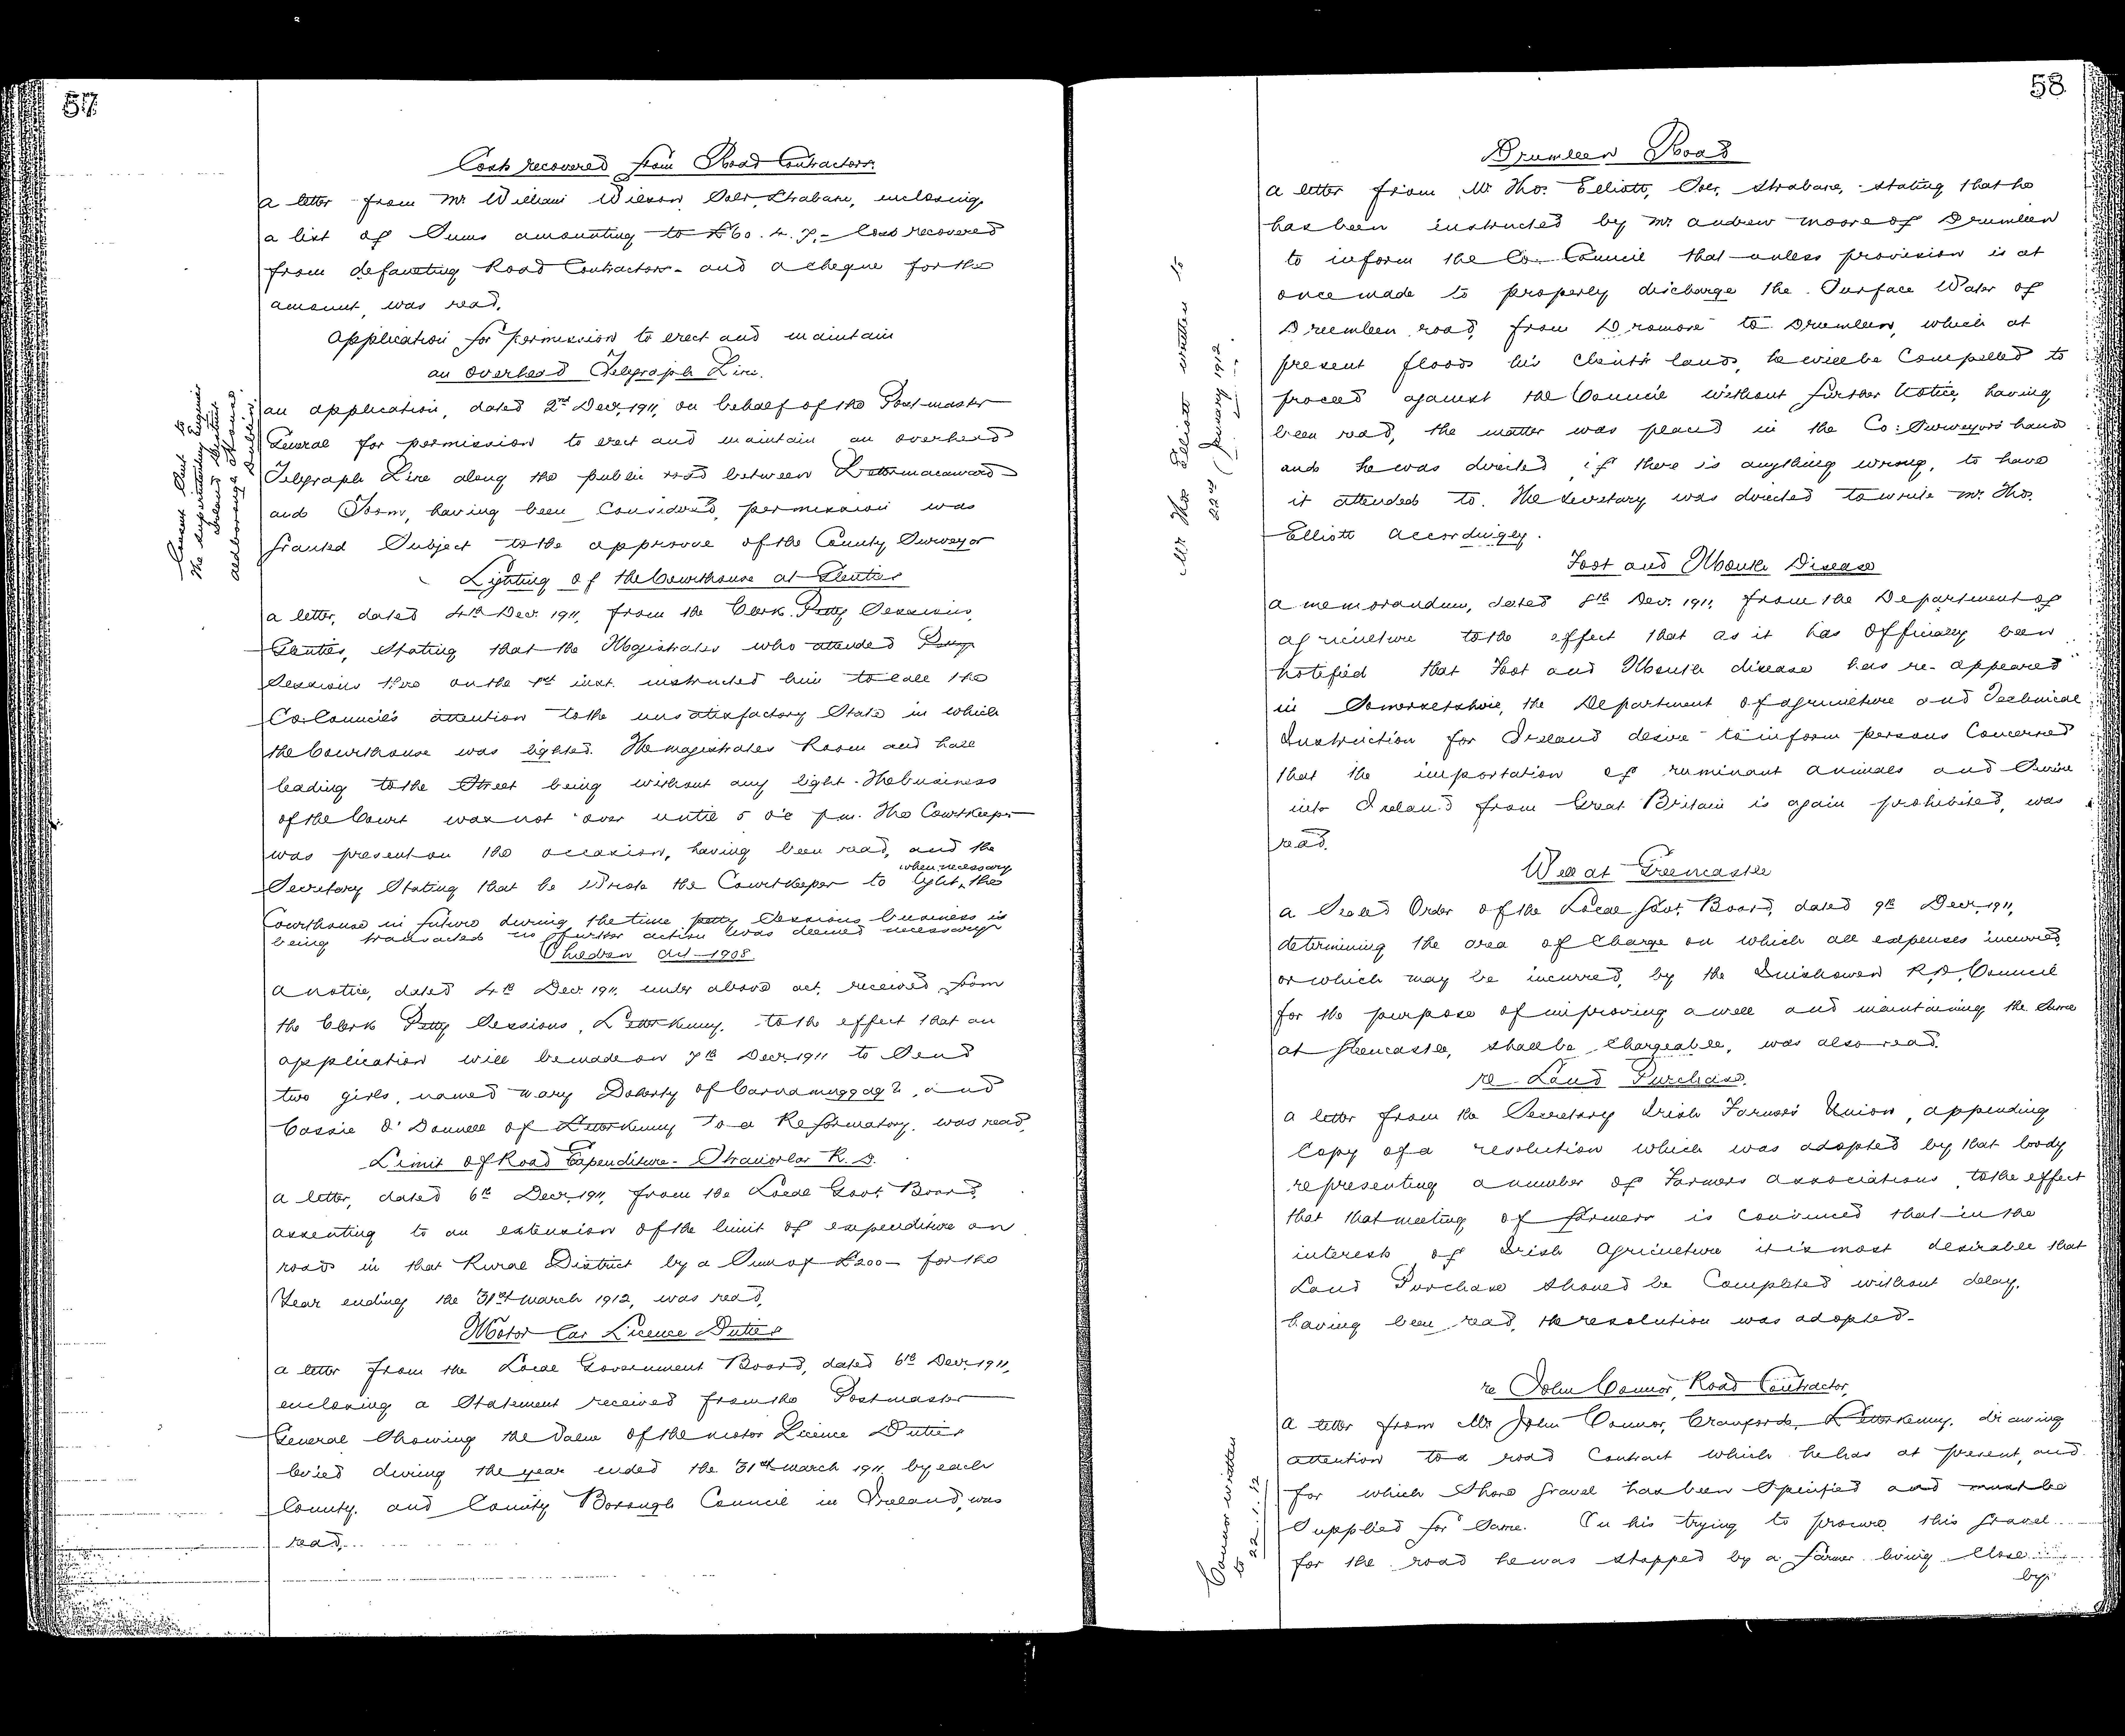 57
Costs recovered from Road Contractors.
a letter from Mr William Wilson Solr, Strabane, enclosing
a list of Sums amounting to £60.4.7.- Costs recovered
from defaulting Road Contractors - and a cheque for the
amount, was read.
Application for permission to erect and maintain
an overhead Telegraph Line.
Consent sent to
the Superintending Engineer
Ireland District
Aldborough House
Dublin.
an application, dated 2nd Decr, 1911, on behalf of the Postmaster
General for permission to erect and maintain an overhead
Telegraph Line along the public road between Lettermacaward
and Doom, having been considered, permission was
granted Subject to the approval of the County Surveyor
Lighting of the Courthouse at Glenties
a letter, dated 4th Dec. 1911, from the Clerk Petty Sessions,
Glenties, Stating that the Magistrates who attended Petty
Sessions there on the 1st inst. instructed him to call the
Co. Council's attention to the unsatisfactory State in which
the Courthouse was lighted. The magistrates Room and hall
leading to the Street being without any light. The business
of the Court was not over until 5 o'c p.m. The Courtkeeper
was present on the occasion, having been read, and the
when necessary
Secretary Stating that he wrote the Courtkeeper to light, the
Courthouse in future during the time petty Sessions business is
being transacted no further action was deemed necessary
Children Act 1908.
a notice, dated 4th Dec. 1911, under above act, received from
the Clerk Petty Sessions, Letterkenny, to the effect that an
application will be made on 7th Decr, 1911 to Send
two girls, named Mary Doherty of Carnamuggagh, and
Cassie O'Donnell of Letterkenny to a Reformatory, was read,
Limit of Road Expenditure - Stranorlar R. D.
a letter, dated 6th Decr, 1911, from the Local Govt. Board,
assenting to an extension of the limit of expenditure on
roads in that Rural District by a Sum of £200 - for the
Year ending the 31st March 1912, was read,
Motor Car Licence Duties
a letter from the Local Government Board, dated 6th Decr, 1911,
enclosing a Statement received from the Postmaster
General Showing the Value of the motor Licence Duties
levied during the year ended the 31st March 1911, by each
County, and County Borough Council in Ireland, was
read.
58
Drumleen Road
Mr Thos Elliott written to
22nd January 1912.
a letter from Mr Tho. Elliott, Solr, Strabane, stating that he
has been instructed by Mr. Andrew Moore of Drumleen
to inform the Co. Council that unless provision is at
once made to properly discharge the Surface Water of
Drumleen road, from Dromore to Drumleen, which at
present floods his Client's lands, he will be Compelled to
proceed against the Council without further Notice, having
been read, the matter was placed in the Co: Surveyors hands
and he was directed, if there is anything wrong, to have
it attended to. The Secretary was directed to write Mr. Tho.
Elliott accordingly.
Foot and Mouth Disease
a memorandum, dated 8th Dec. 1911, from the Department of
agriculture to the effect that as it has officially been
notified that Foot and Mouth disease has re-appeared
in Somersetshire, the Department of agriculture and Technical
Instruction for Ireland desire to inform persons Concerned
that the importation of ruminant animals and Swine
into Ireland from Great Britain is again prohibited, was
read.
Well at Greencastle
a Sealed Order of the Local Govt. Board, dated 9th Decr, 1911,
determining the area of Charge on which all expenses incurred,
or which may be incurred, by the Inishowen R.D. Council
for the purpose of improving a well and maintaining the Same
at Greencastle, shall be Chargeable, was also read.
re Land Purchase.
a letter from the Secretary Irish Farmers Union, appending
Copy of a resolution which was adopted by that body
representing a number of Farmers associations, to the effect
that that meeting of farmers is convinced that in the
interests of Irish agriculture it is most desirable that
Land Purchase should be Completed without delay,
having been read, the resolution was adopted.
re John Connor, Road Contractor,
Connor written
to 22.1.12
a letter from Mr John Connor, Cranfords, Letterkenny, drawing
attention to a road Contract which he has at present, and
for which Shore gravel has been Specified and must be
Supplied for Same. On his trying to procure this gravel
for the road he was stopped by a farmer living Close
by.